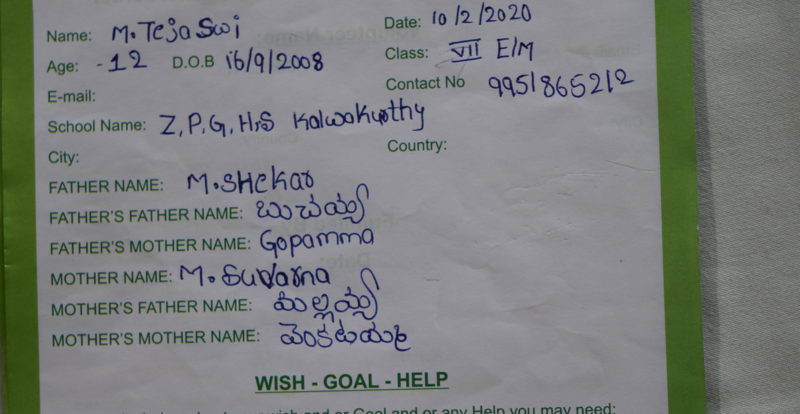 Name: M.Tejaswi Date: 10/2/2020
Age: -12 D.O.B 16/9/2008 Class: VII E/M
E-mail: Contact No 9951865212
School Name: Z.P.G.H.S Kalwakurthy
City: Country:
FATHER NAME: M.SHekar
FATHER'S FATHER NAME: బుచయ్య
FATHER'S MOTHER NAME: Gopamma
MOTHER NAME: M.Suvarna
MOTHER'S FATHER NAME: మల్లయ్య
MOTHER'S MOTHER NAME: వెంకటయమ్మ
WISH - GOAL - HELP
wish and or Goal and or any Help you may need: